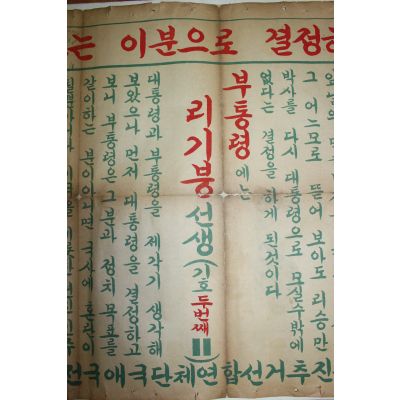 는 이분으로 결정하
그 어느모로 뜯어 보아도 리승만
박사를 다시 대통령으로 모실수밖에
없다는 결정을 하게 된것이다
부통령에는
리기붕선생 (기호 두번째 II)
대통령과 부통령을 제각기 생각해
보았으나 먼저 대통령을 결정하고
보니 부통령은 그분과 정치 목표를
같이하는 분이 아니면 국사에 혼란이
전국애국단체연합선거추진